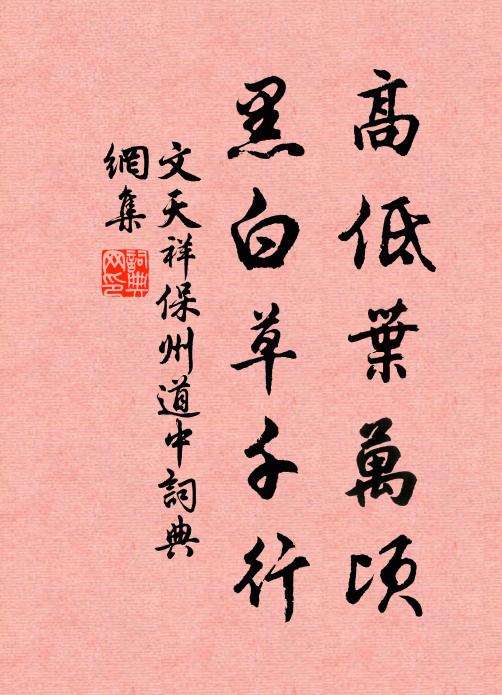 高低葉萬頃
黑白草千行
文天祥保州道中詞典
網集
詞典
网印